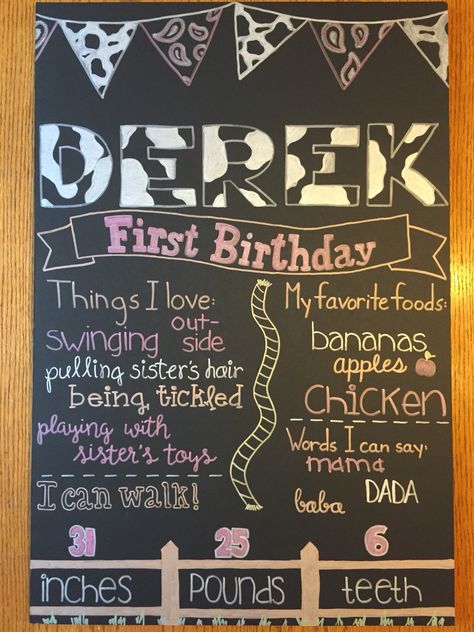 DEREK
First Birthday
Things I love:
swinging out-
side
pulling sister's hair
being tickled
playing with
sister's toys
I can walk!
My favorite foods:
bananas
apples
chicken
Words I can say:
mama
baba DADA
31 25 6
inches Pounds teeth